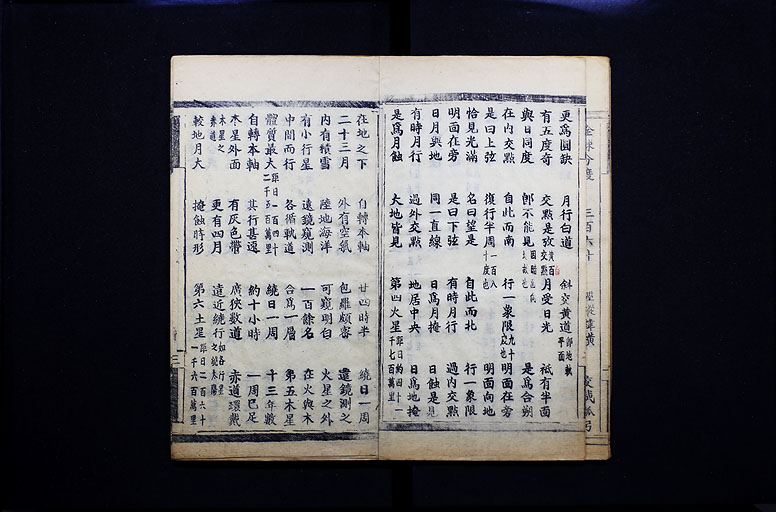 更爲圓缺 月行白道 斜交黃道 祇有半面
有五度奇 交點是攷 月受日光 是爲合朔
與日同度 卽不能見
在內交點 自此而南 行一象限 九十度也 明面在旁
是曰上弦 復行半周 一百八十度也 明面向地
恰見光滿 名曰望是 自此而北 行一象限
明面在旁 是曰下弦 有時月行 過內交點
日月與地 同一直線 日爲月掩 日蝕是見
有時月行 過外交點 地居中央 日爲地掩
是爲月蝕 大地皆見 第四火星 距日約四十一千七百萬里
在地之下 自轉本軸 廿四時半 繞日一周
二十三月 外有空氣 包羅頗審 遠鏡測之
內有積雪 陸地海洋 可窺明白 火星之外
有小行星 遠鏡窺測 一百餘名 在火與木
中間而行 各循軌道 合爲一層 第五木星
體質最大 距日一百四十二千五百萬里 繞日一周 十三年數
自轉本軸 其行甚速 約十小時 一周已足
木星外面 有灰色帶 廣狹數道 赤道環戴
木星之赤道 更有四月 遠近繞行 如各行星之繞太陽
較地月大 掩蝕時形 第六土星 距日二百六十一千六百萬里